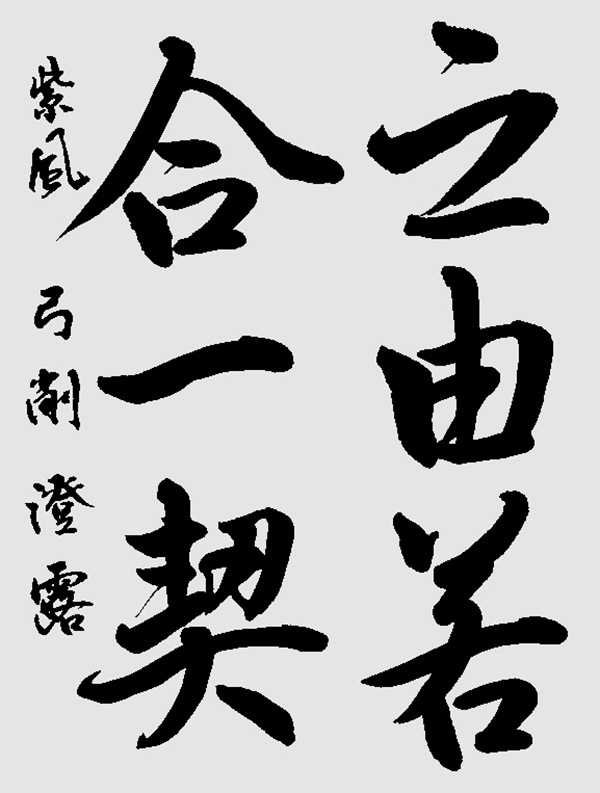 之由若
合一契
紫風 弓削 澄露